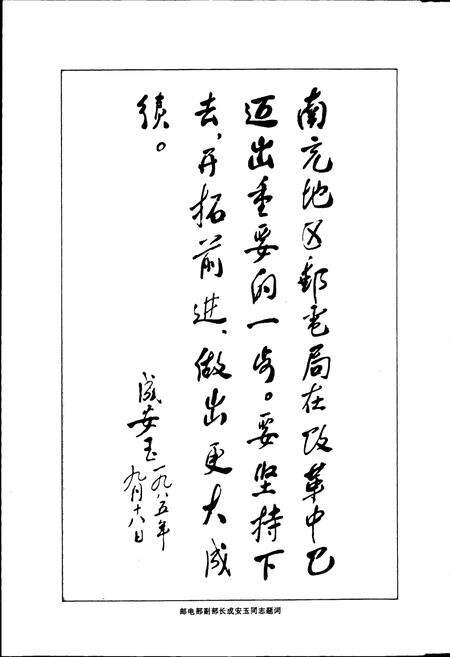 南充地区邮电局在改革中已
迈出重要的一步。要坚持下
去,开拓前进、做出更大成
绩。
成安玉一九八五年
九月十八日
邮电部副部长成安玉同志题词